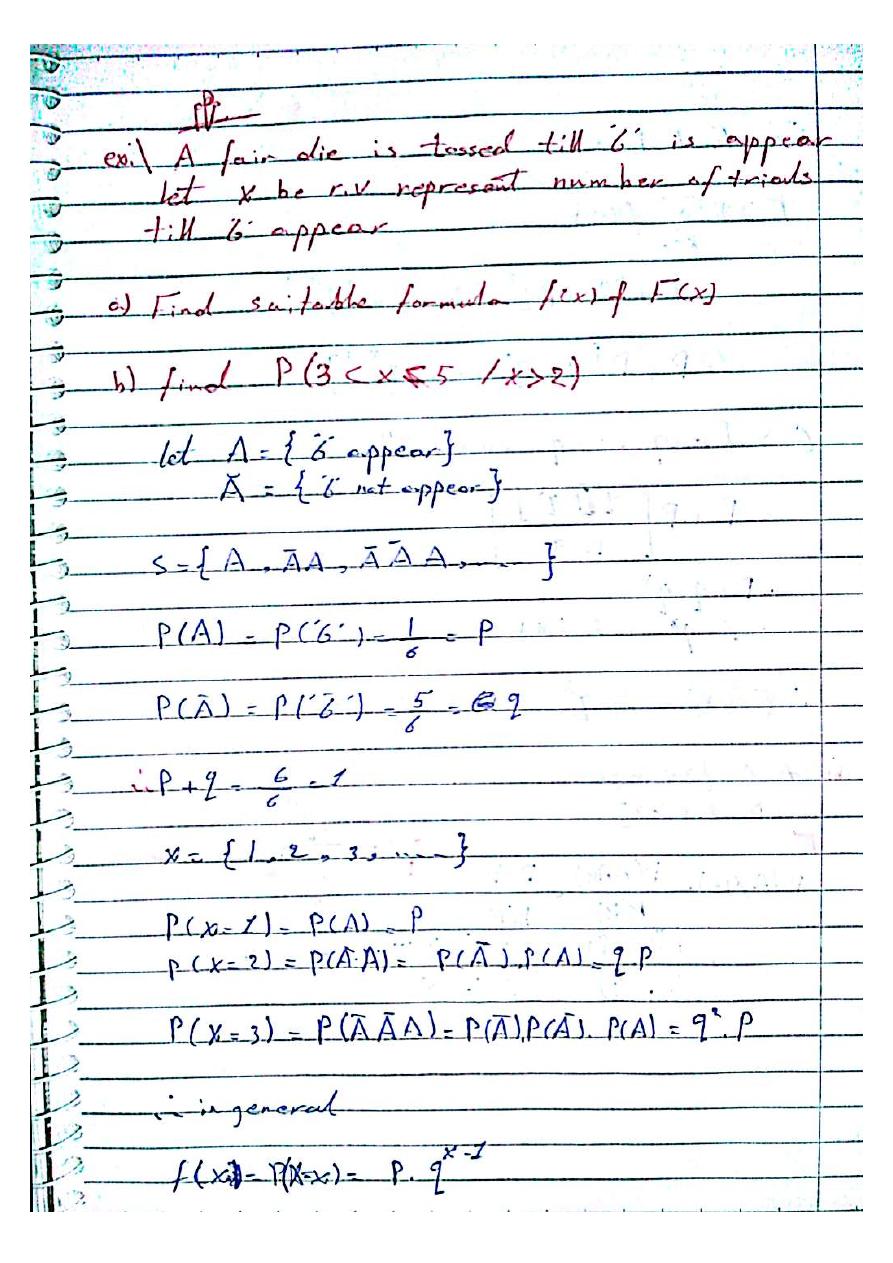 ex:\ A fair die is tossed till '6' is appear
let x be r.v represant number of trials
till '6' appear
a) Find suitable formula f(x) & F(x)
b) find P(3 < x ≤ 5 / x > 2)
let A = { '6' appear }
Ā = { '6' not appear }
S = { A , ĀA , ĀĀA , ..... }
P(A) = P('6') = 1/6 = P
P(Ā) = P('6̄') = 5/6 = q
∴ P + q = 6/6 = 1
x = { 1 , 2 , 3 , ..... }
P(x = 1) = P(A) = P
P(x = 2) = P(Ā A) = P(Ā) . P(A) = q . P
P(X = 3) = P(Ā Ā A) = P(Ā) . P(Ā) . P(A) = q² . P
∴ in general
f(x) = P(X = x) = P . q^(x-1)